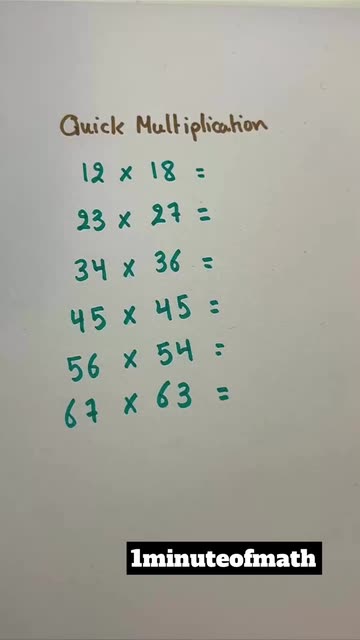 Quick Multiplication
12 x 18 =
23 x 27 =
34 x 36 =
45 x 45 =
56 x 54 =
67 x 63 =
1minuteofmath